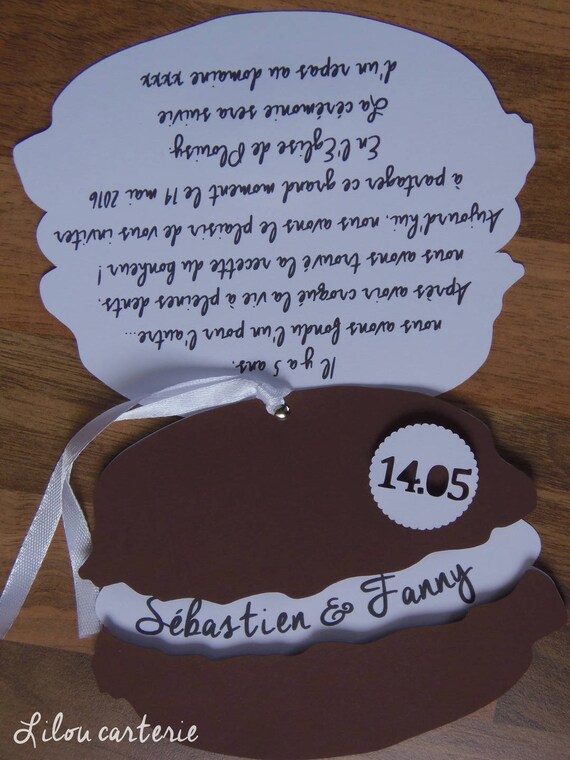 Il y a 5 ans,
nous avons fondu l'un pour l'autre...
Après avoir croqué la vie à pleines dents,
nous avons trouvé la recette du bonheur !
Aujourd'hui, nous avons le plaisir de vous inviter
à partager ce grand moment le 14 mai 2016
En l'Eglise de Plouisy.
La cérémonie sera suivie
d'un repas au domaine xxxx
14.05
Sébastien & Fanny
Lilou carterie